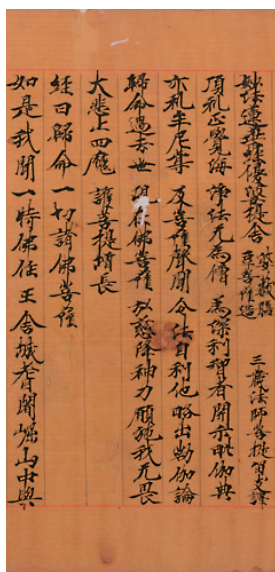 妙法蓮華經優婆提舍 婆藪槃豆菩薩造 三藏法師菩提留支譯
頂礼正覺海 淨法无為僧 為深利智者 開示毗伽典
亦礼牟尼尊 及菩薩聲聞 令法自利他 略出勒伽論
歸命過去世 現 佛菩薩 弘慈降神力 願施我无畏
大悲止四魔 護菩提增長
經曰歸命一切諸佛菩薩
如是我聞一時佛住王舍城耆闍崛山中與